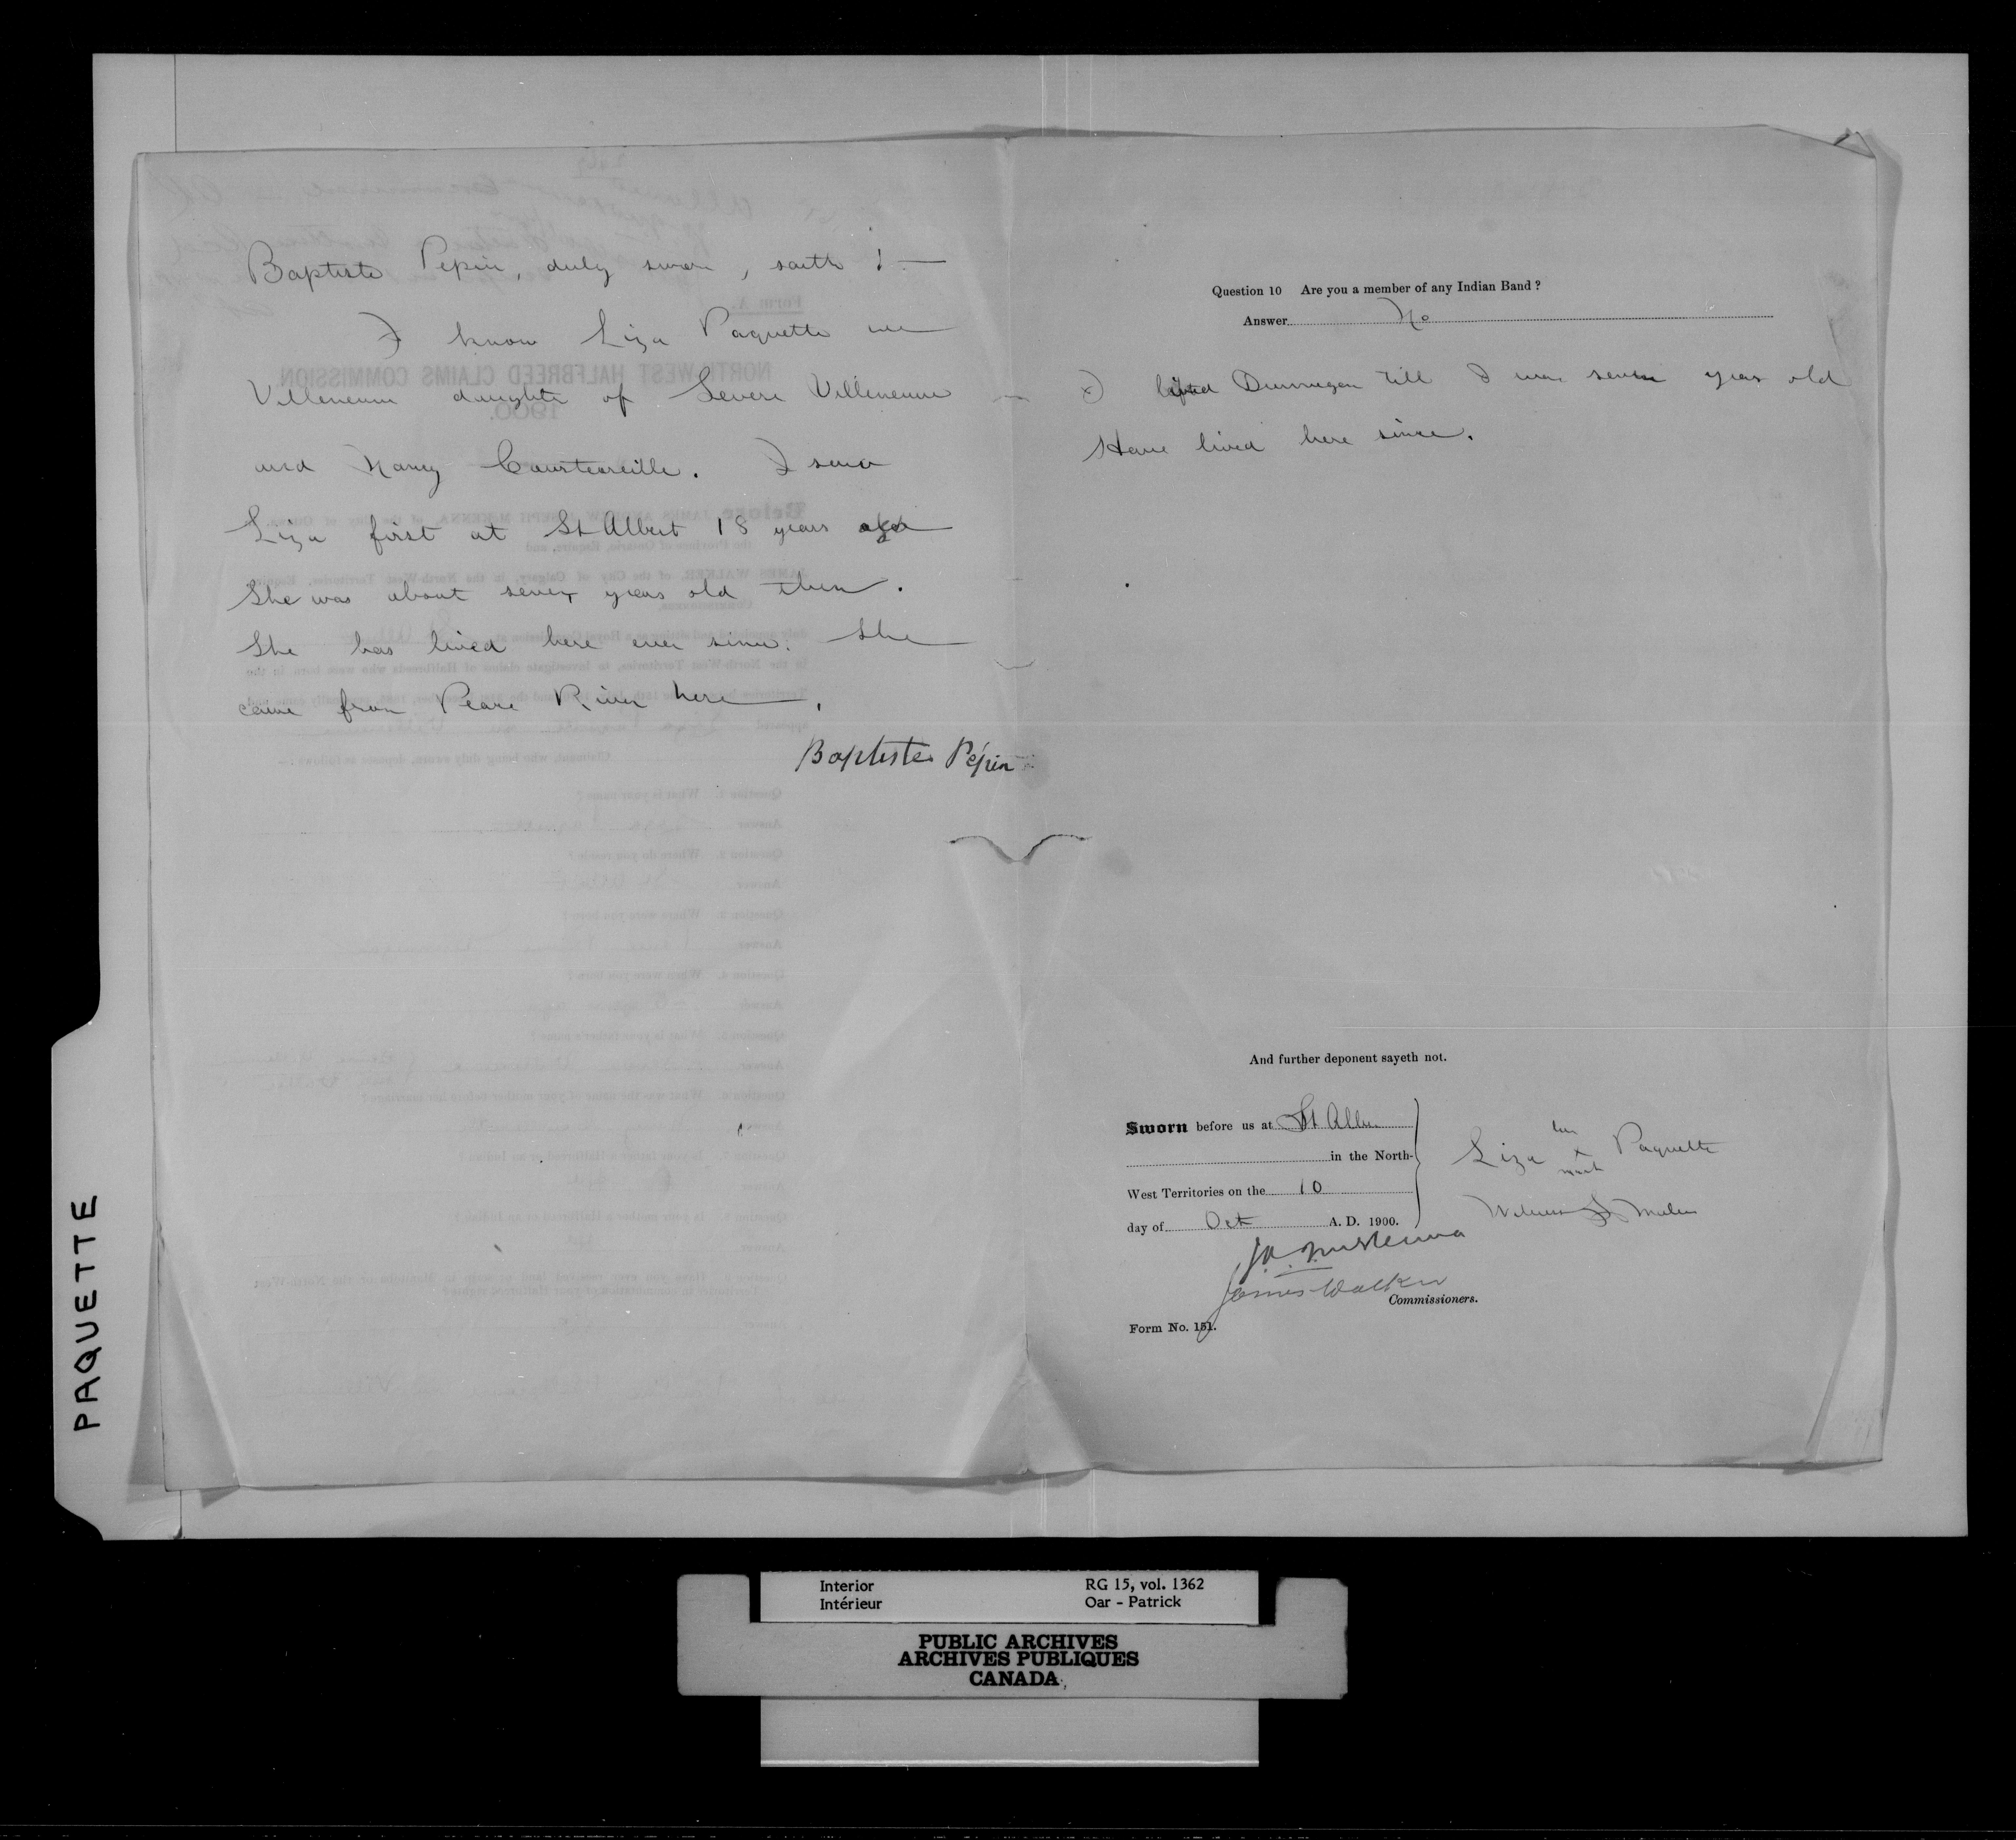 Baptiste Pepin, duly sworn, saith :—
I know Liza Paquette nee
Villeneuve daughter of Severe Villeneuve
and Nancy Courteoreille. I saw
Liza first at St Albert 18 years ago
She was about seven years old then.
She has lived here ever since. She
came from Peace River here.
Baptiste Pépin
Question 10 Are you a member of any Indian Band ?
Answer No
I Dunvegan till I was seven years old
Have lived here since.
And further deponent sayeth not.
Sworn before us at St Albert
in the North-
West Territories on the 10
day of Oct A. D. 1900.
her
Liza x Paquette
mark
Witness
J.A. McKenna
James Walker
Commissioners.
Form No. 151.
PAQUETTE
Interior RG 15, vol. 1362
Intérieur Oar - Patrick
PUBLIC ARCHIVES
ARCHIVES PUBLIQUES
CANADA